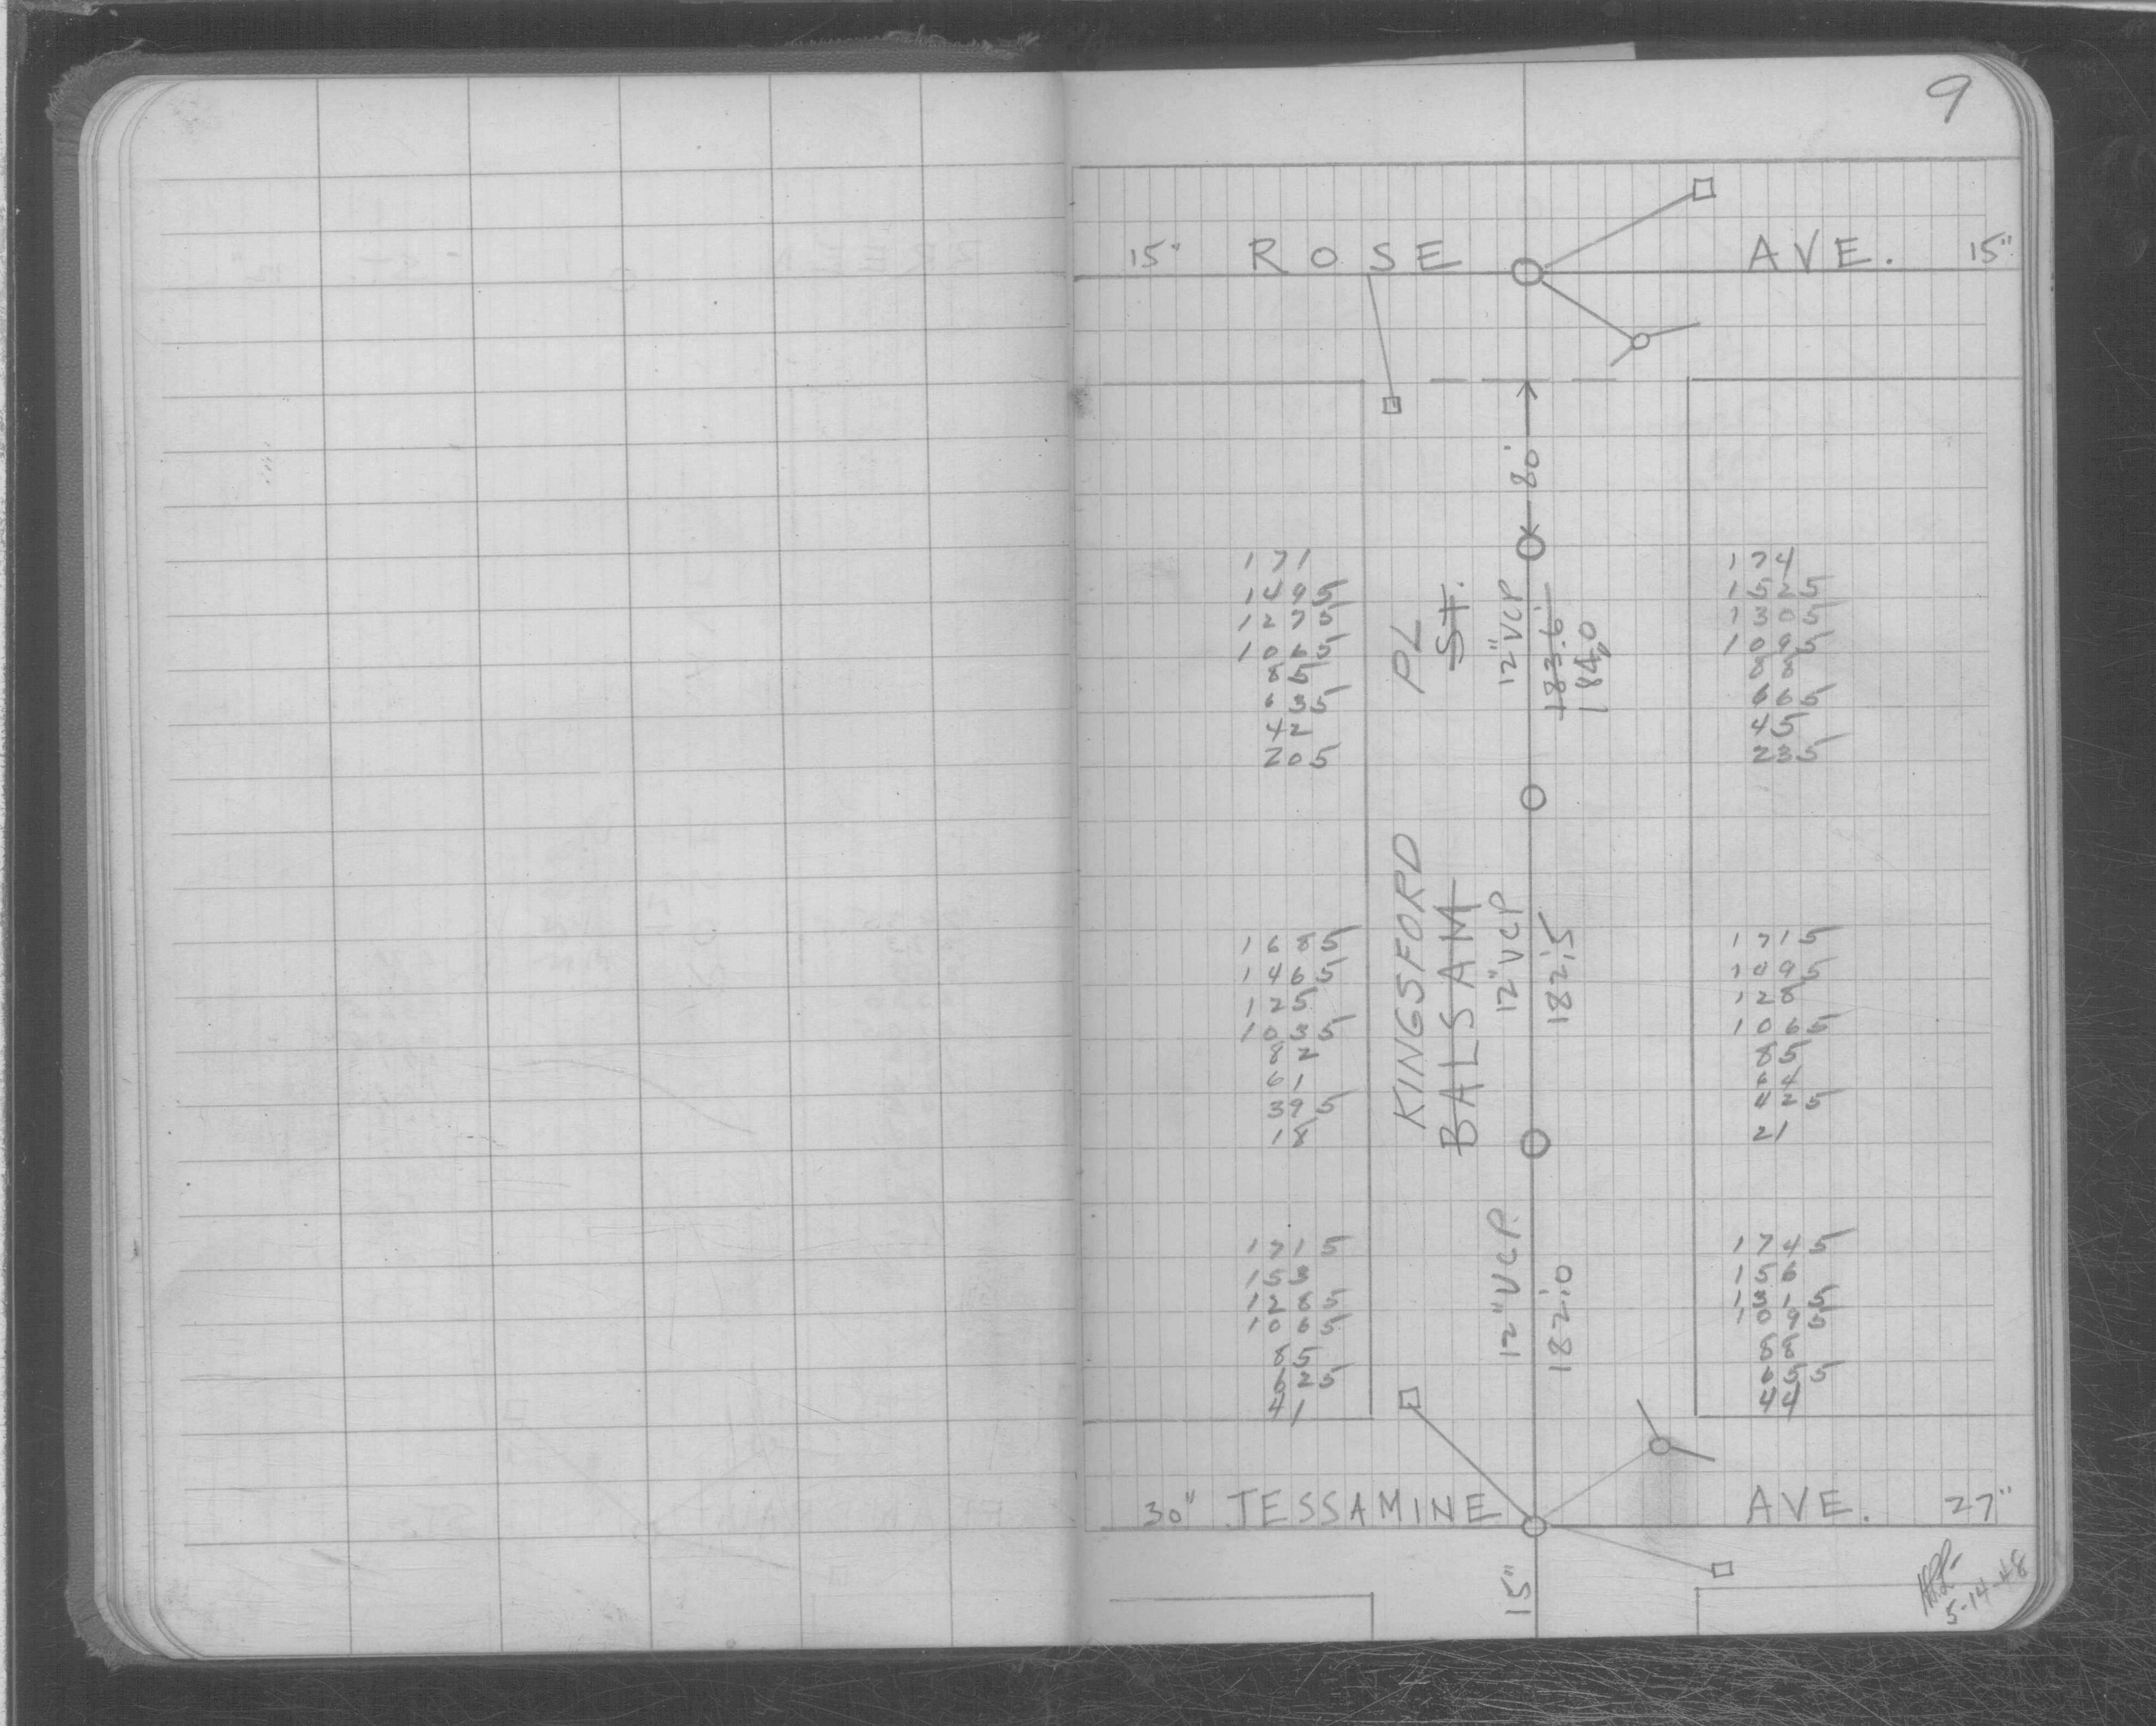 9
15" ROSE AVE. 15"
80'
171
1495
1275
1065
85
635
42
205
PL
St.
12" VCP
183.6'
184.0
174
1525
1305
1095
88
665
45
235
1685
1465
125
1035
82
61
395
18
KINGSFORD
BALSAM
12" VCP
182.'5
1715
1495
128
1065
85
64
425
21
1715
153
1285
1065
85
625
41
12" VCP.
182.'0
1745
156
1315
1095
88
655
44
30" JESSAMINE AVE. 27"
15"
5-14-48